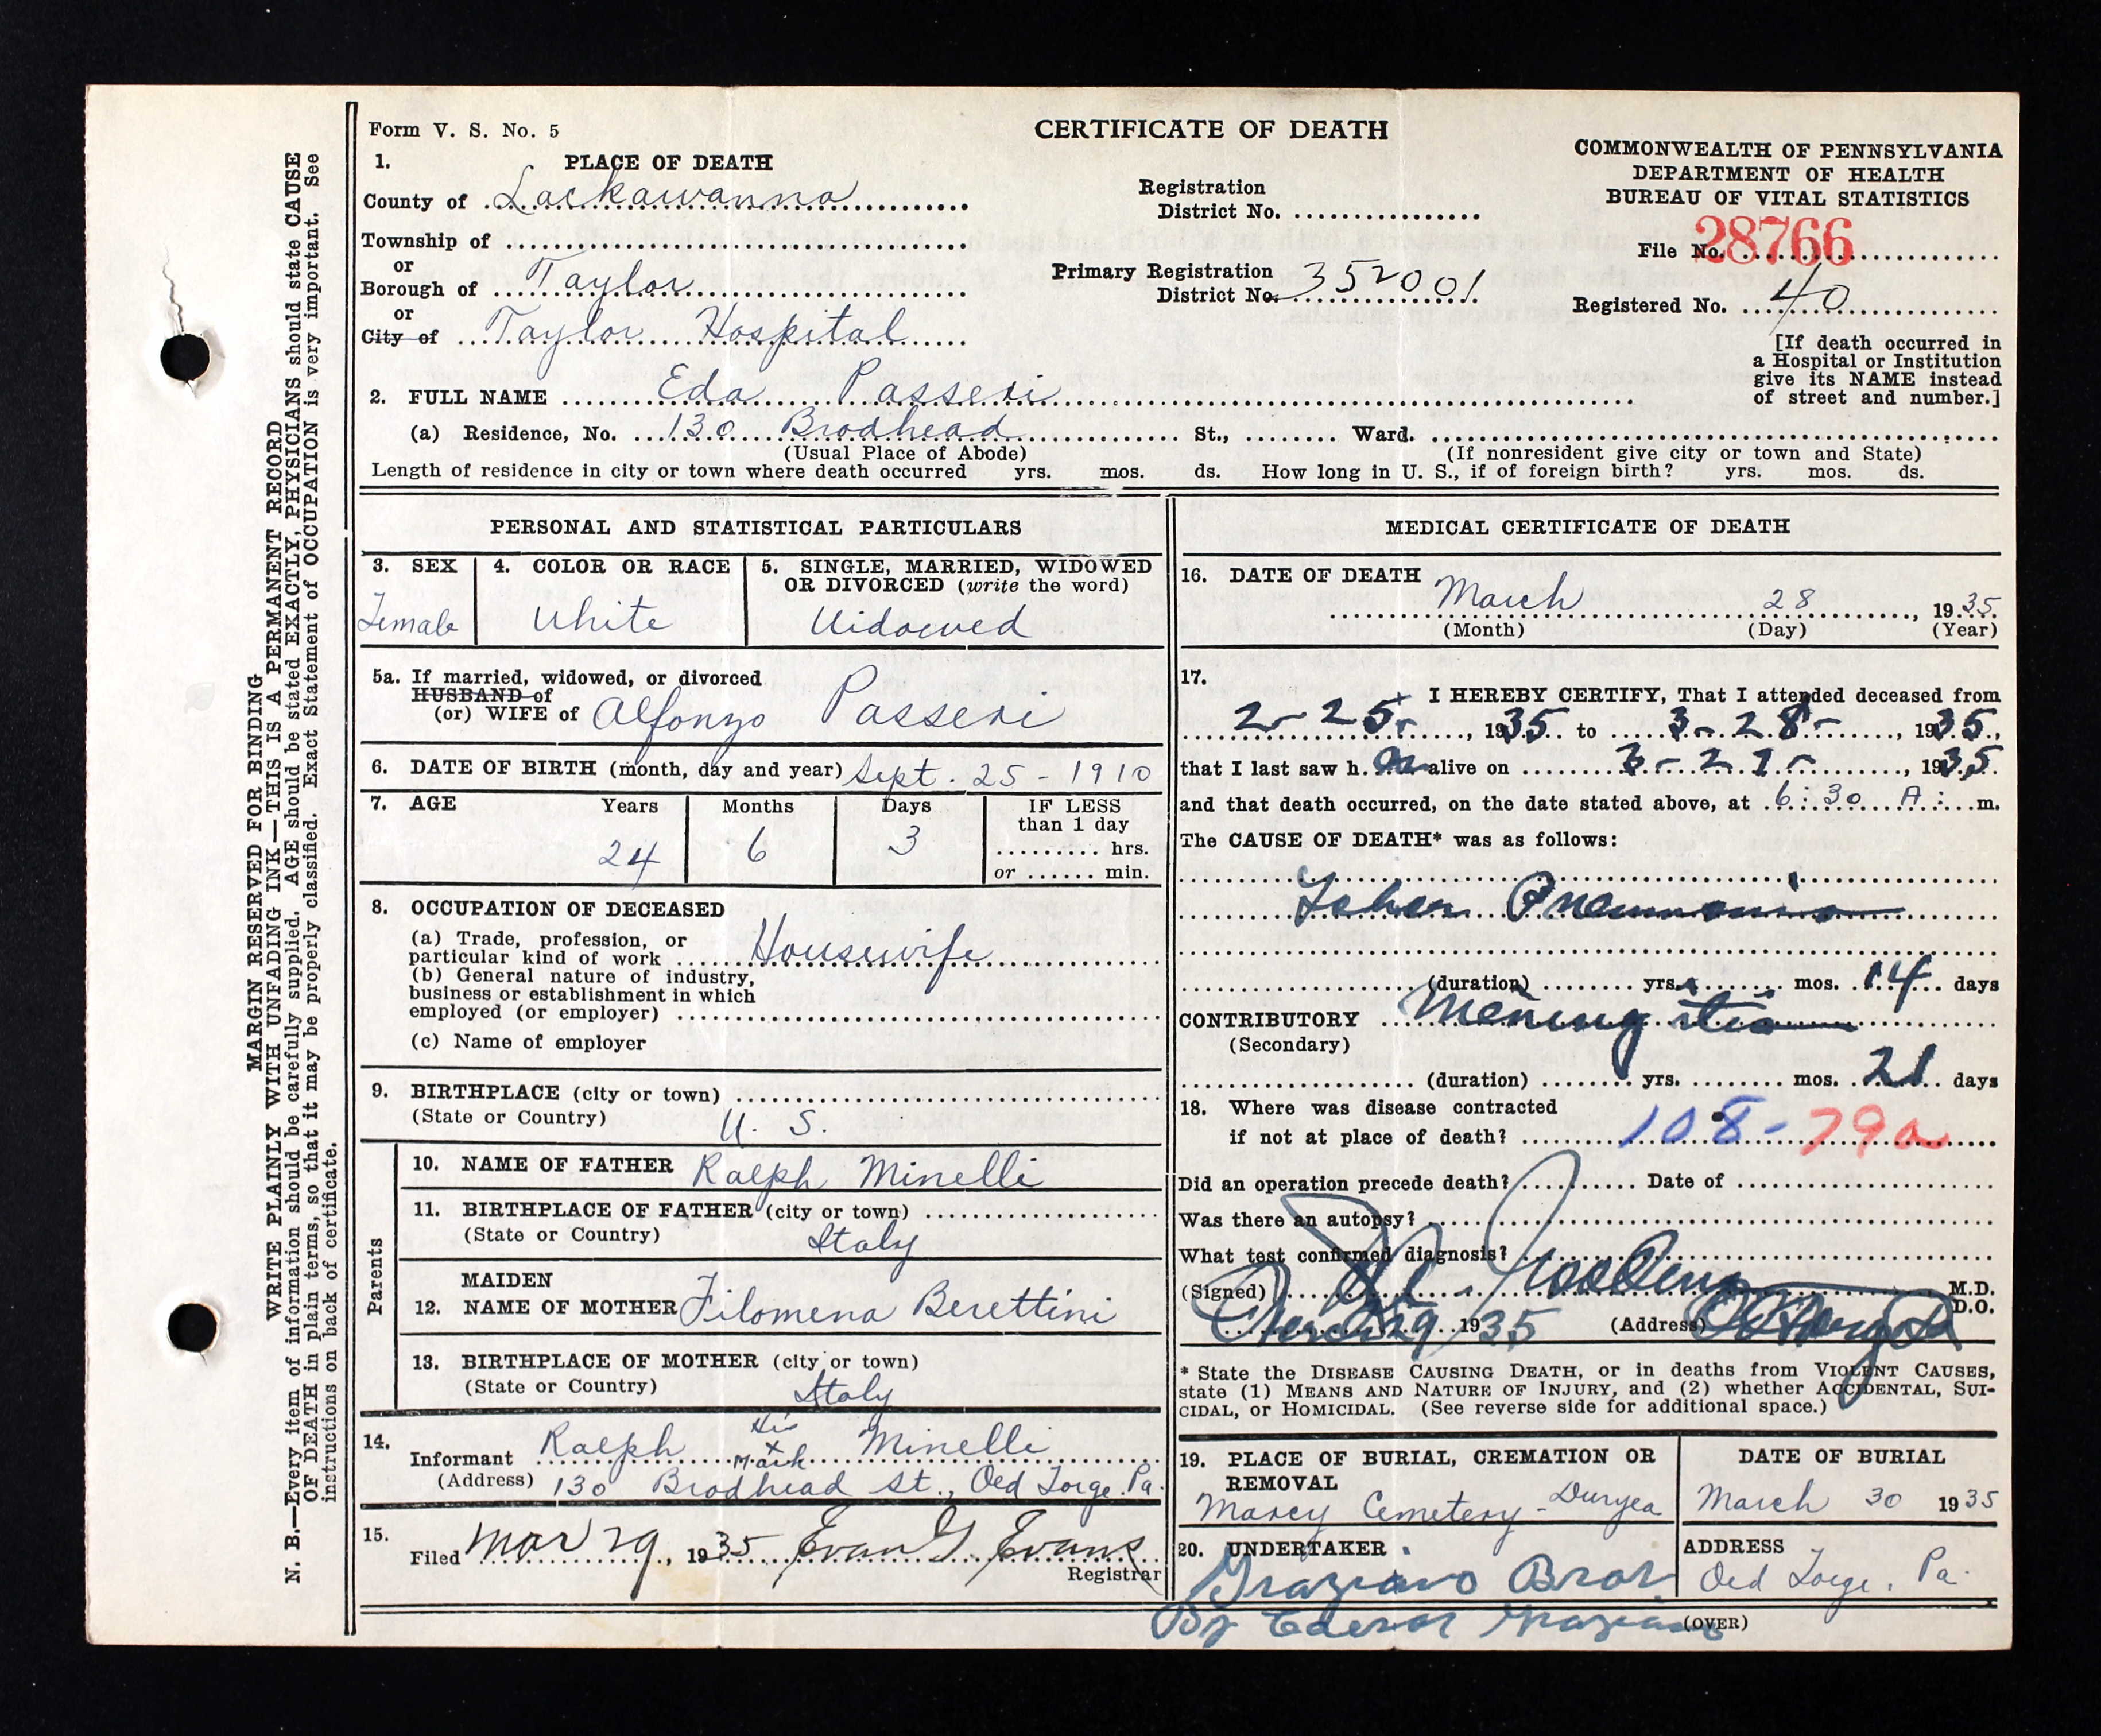 Form V. S. No. 5
CERTIFICATE OF DEATH
COMMONWEALTH OF PENNSYLVANIA
DEPARTMENT OF HEALTH
BUREAU OF VITAL STATISTICS
1. PLACE OF DEATH
County of Lackawanna
Registration
District No.
File No. 28766
Township of
or
Borough of Taylor
Primary Registration
District No. 352001
Registered No. 40
or
City of Taylor Hospital
[If death occurred in
a Hospital or Institution
give its NAME instead
of street and number.]
2. FULL NAME Eda Passeri
(a) Residence, No. 130 Brodhead St., Ward.
(Usual Place of Abode) (If nonresident give city or town and State)
Length of residence in city or town where death occurred yrs. mos. ds. How long in U. S., if of foreign birth? yrs. mos. ds.
PERSONAL AND STATISTICAL PARTICULARS
3. SEX
Female
4. COLOR OR RACE
White
5. SINGLE, MARRIED, WIDOWED
OR DIVORCED (write the word)
Widowed
5a. If married, widowed, or divorced
HUSBAND of
(or) WIFE of Alfonzo Passeri
6. DATE OF BIRTH (month, day and year) Sept. 25 - 1910
7. AGE Years Months Days IF LESS
than 1 day
24 6 3 hrs.
or min.
8. OCCUPATION OF DECEASED
(a) Trade, profession, or
particular kind of work Housewife
(b) General nature of industry,
business or establishment in which
employed (or employer)
(c) Name of employer
9. BIRTHPLACE (city or town)
(State or Country) U. S.
Parents
10. NAME OF FATHER Ralph Minelli
11. BIRTHPLACE OF FATHER (city or town)
(State or Country) Italy
MAIDEN
12. NAME OF MOTHER Filomena Berettini
13. BIRTHPLACE OF MOTHER (city or town)
(State or Country) Italy
14. His
Informant Ralph x Minelli
Mark
(Address) 130 Brodhead St., Old Forge. Pa.
15.
Filed Mar 29, 1935 Evan G Evans
Registrar
MEDICAL CERTIFICATE OF DEATH
16. DATE OF DEATH March 28, 1935
(Month) (Day) (Year)
17.
I HEREBY CERTIFY, That I attended deceased from
2-25-, 1935 to 3-28-, 1935,
that I last saw h alive on 3-27-, 1935
and that death occurred, on the date stated above, at 6:30 A. m.
The CAUSE OF DEATH* was as follows:
Lobar Pneumonia
(duration) yrs. mos. 14 days
CONTRIBUTORY Meningitis
(Secondary)
(duration) yrs. mos. 21 days
18. Where was disease contracted
if not at place of death? 108-79a
Did an operation precede death? Date of
Was there an autopsy?
What test confirmed diagnosis?
(Signed) M.D.
D.O.
29 1935 (Address)
* State the DISEASE CAUSING DEATH, or in deaths from VIOLENT CAUSES,
state (1) MEANS AND NATURE OF INJURY, and (2) whether ACCIDENTAL, SUI-
CIDAL, or HOMICIDAL. (See reverse side for additional space.)
19. PLACE OF BURIAL, CREMATION OR
REMOVAL
Marcy Cemetery - Duryea
DATE OF BURIAL
March 30 1935
20. UNDERTAKER
Graziano Bros
By Caesar Graziano
ADDRESS
Old Forge, Pa.
(OVER)
MARGIN RESERVED FOR BINDING
WRITE PLAINLY WITH UNFADING INK—THIS IS A PERMANENT RECORD
N. B.—Every item of information should be carefully supplied. AGE should be stated EXACTLY, PHYSICIANS should state CAUSE
OF DEATH in plain terms, so that it may be properly classified. Exact Statement of OCCUPATION is very important. See
instructions on back of certificate.